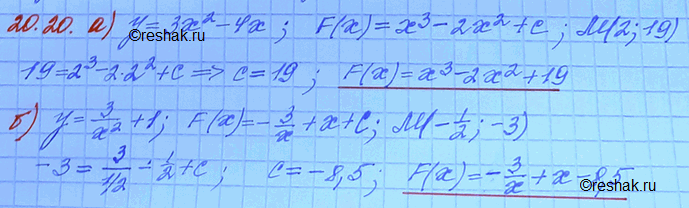 20.20. а) y=3x²-4x; F(x)=x³-2x²+c; M(2;19)
©reshak.ru
19=2³-2·2²+c => c=19; F(x)=x³-2x²+19
б) y=3/x²+1; F(x)=-3/x+x+C; M(-1/2;-3)
-3=3/1/2-1/2+c; c=-8,5; F(x)=-3/x+x-8,5
©reshak.ru